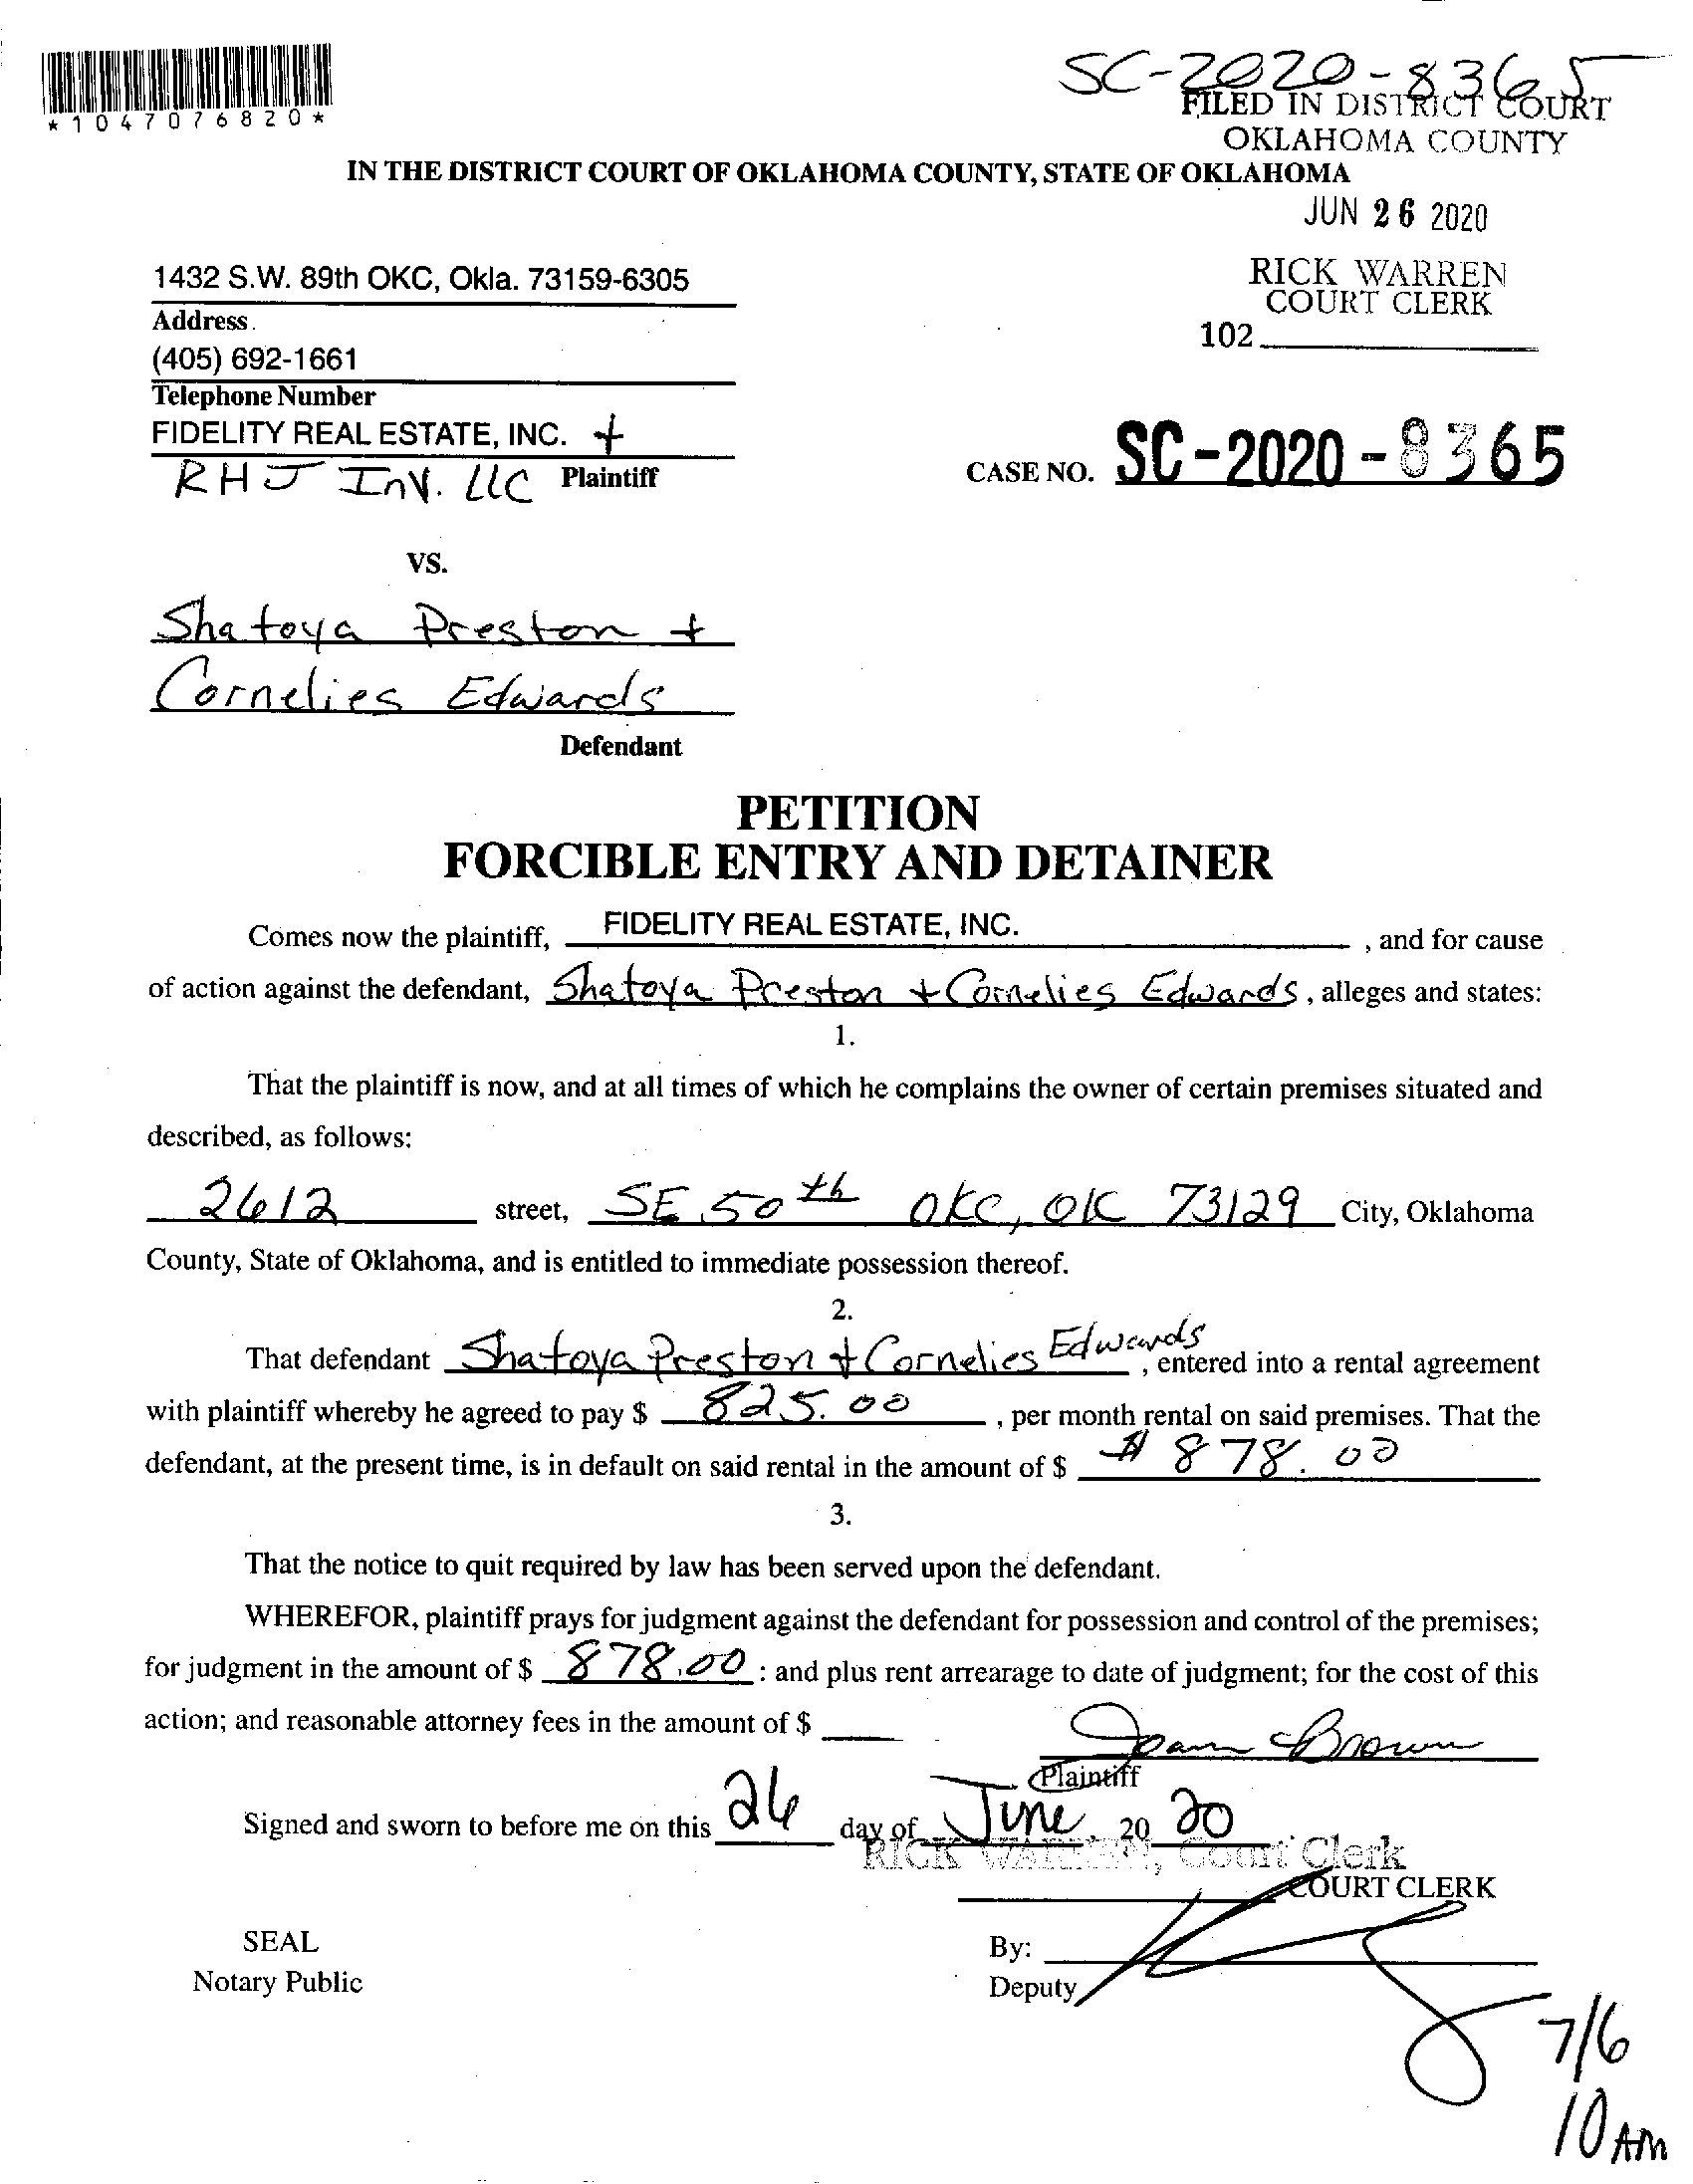 SC-2020-8365
*1047076820*
FILED IN DISTRICT COURT
OKLAHOMA COUNTY
IN THE DISTRICT COURT OF OKLAHOMA COUNTY, STATE OF OKLAHOMA
JUN 26 2020
1432 S.W. 89th OKC, Okla. 73159-6305
RICK WARREN
COURT CLERK
Address
102
(405) 692-1661
Telephone Number
FIDELITY REAL ESTATE, INC. +
RHJ Inv. LLC Plaintiff
CASE NO. SC-2020-8365
VS.
Shatoya Preston +
Cornelies Edwards
Defendant
PETITION
FORCIBLE ENTRY AND DETAINER
Comes now the plaintiff, FIDELITY REAL ESTATE, INC. , and for cause
of action against the defendant, Shatoya Preston + Cornelies Edwards, alleges and states:
1.
That the plaintiff is now, and at all times of which he complains the owner of certain premises situated and
described, as follows:
2612 street, SE 50th OKC, OK 73129 City, Oklahoma
County, State of Oklahoma, and is entitled to immediate possession thereof.
2.
That defendant Shatoya Preston + Cornelies Edwards, entered into a rental agreement
with plaintiff whereby he agreed to pay $ 825.00 , per month rental on said premises. That the
defendant, at the present time, is in default on said rental in the amount of $ $ 878.00
3.
That the notice to quit required by law has been served upon the defendant.
WHEREFOR, plaintiff prays for judgment against the defendant for possession and control of the premises;
for judgment in the amount of $ 878.00 : and plus rent arrearage to date of judgment; for the cost of this
action; and reasonable attorney fees in the amount of $
Joann Brown
Plaintiff
Signed and sworn to before me on this 26 day of June, 20 20
RICK WARREN, Court Clerk
COURT CLERK
SEAL
By:
Notary Public
Deputy
7/6
10 AM